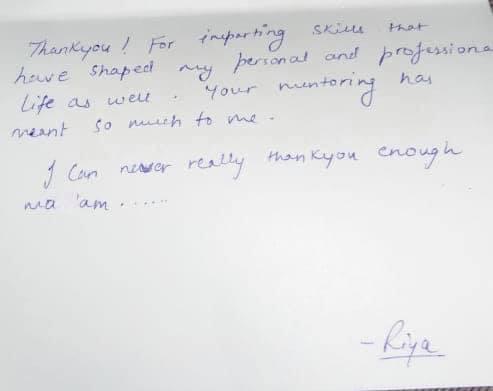 Thankyou! For imparting skills that
have shaped my personal and professiona
life as well. Your mentoring has
meant so much to me.
I can never really thankyou enough
ma'am......
- Riya